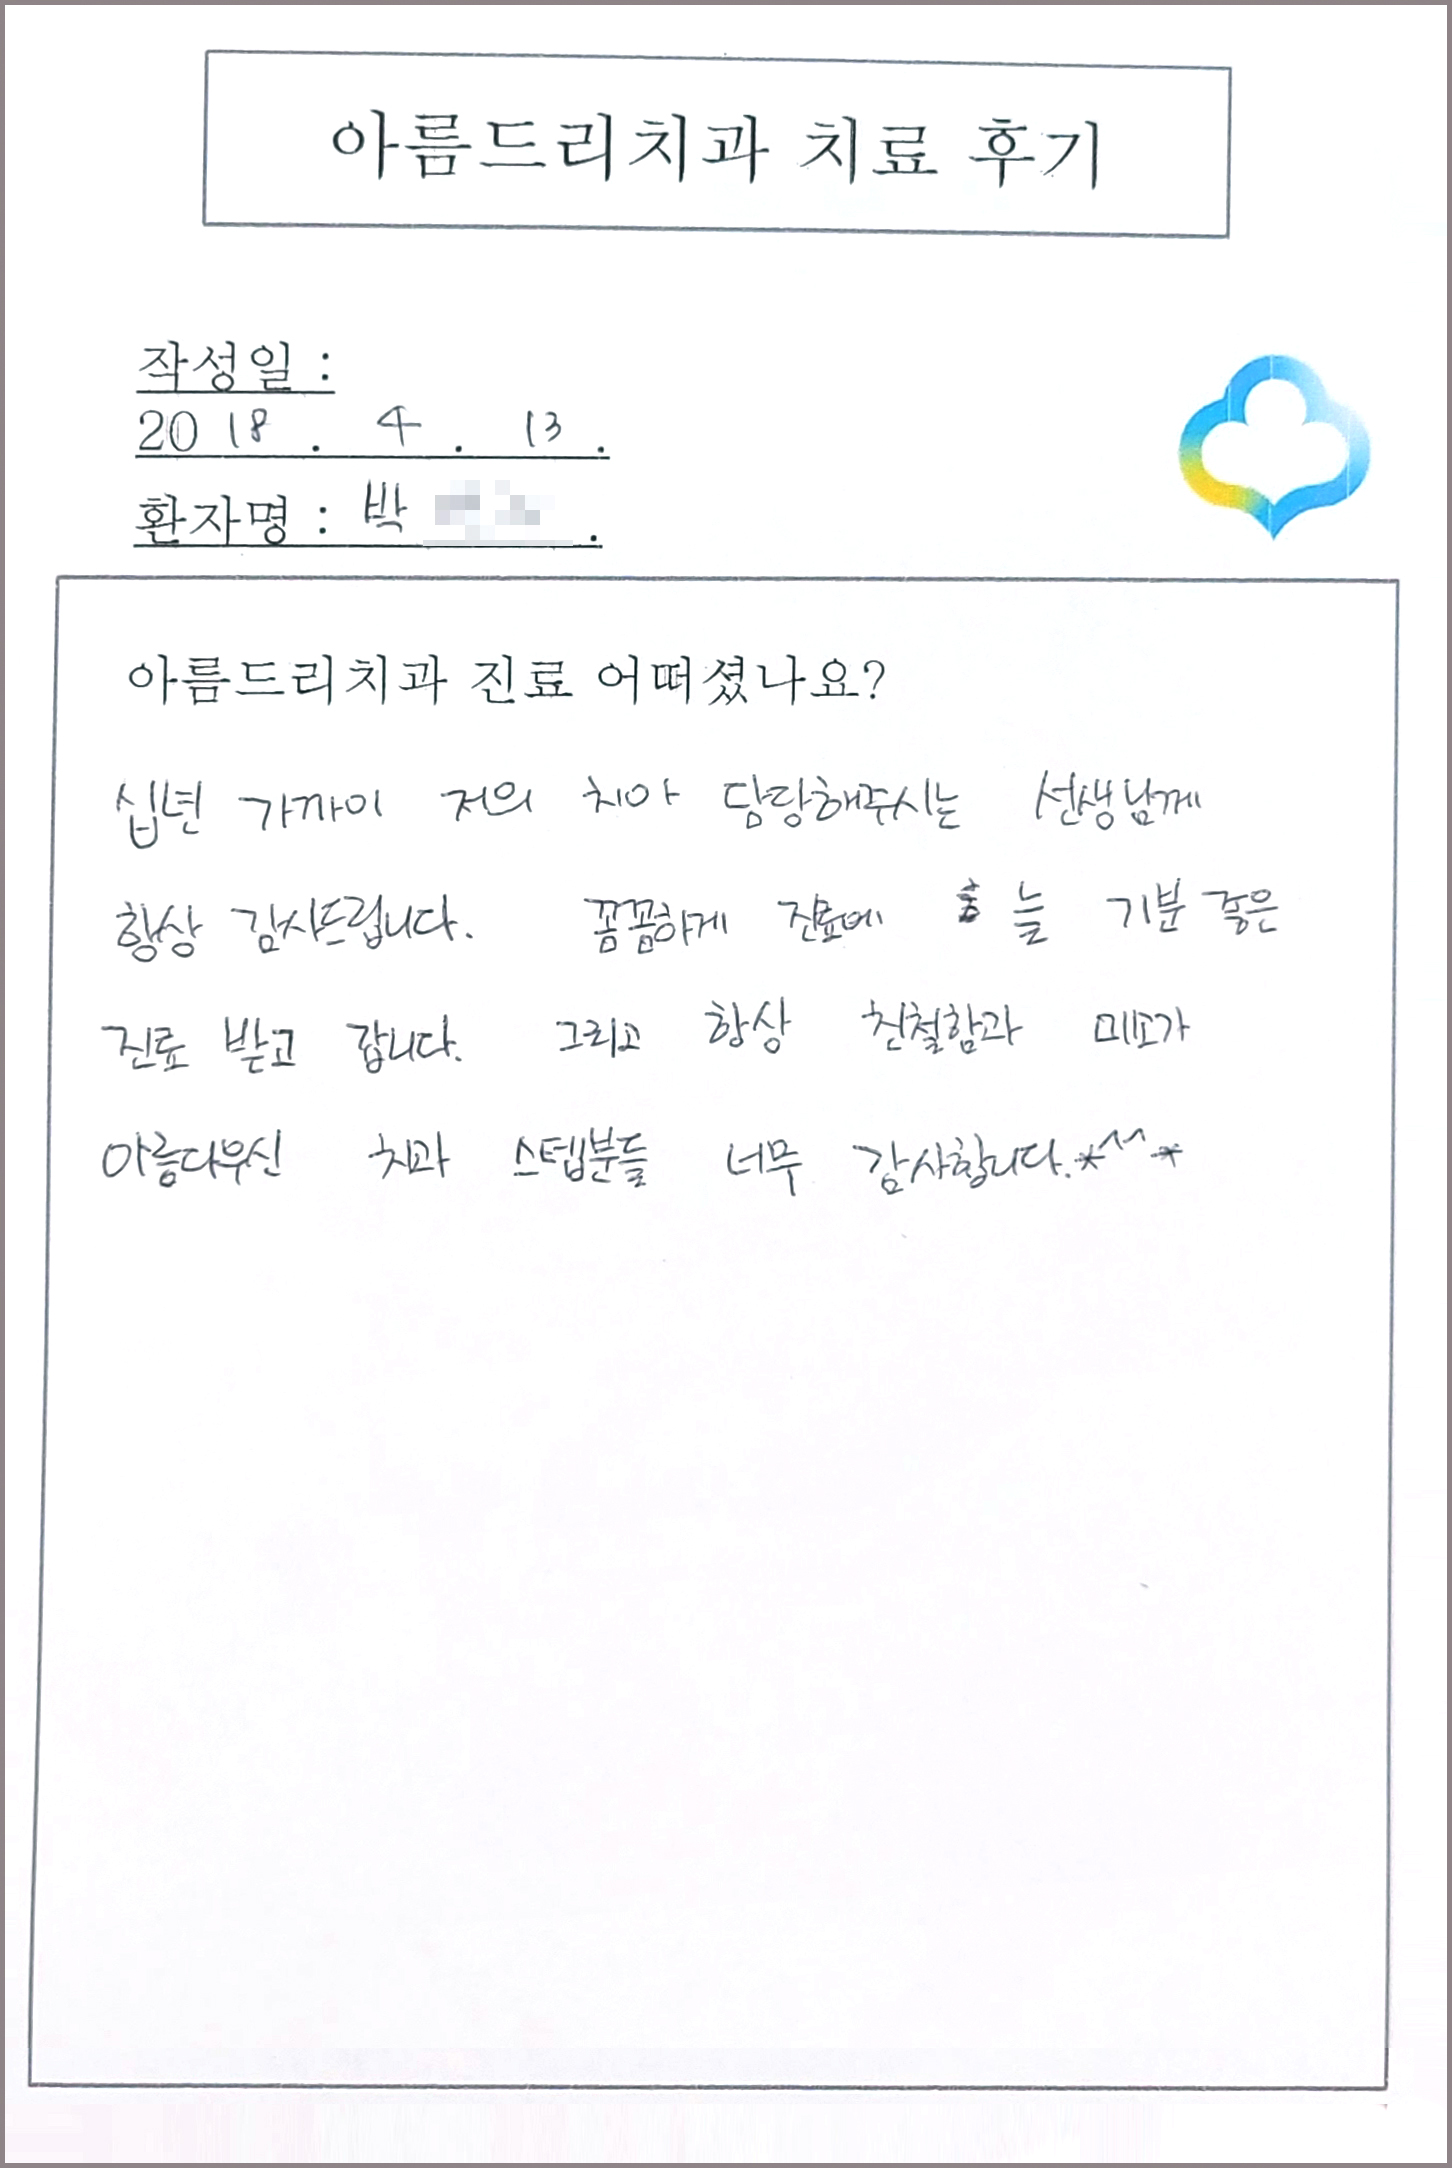 아름드리치과 치료 후기
작성일 :
2018 . 4 . 13 .
환자명 : 박 .
아름드리치과 진료 어떠셨나요?
십년 가까이 저의 치아 담당해주시는 선생님께
항상 감사드립니다. 꼼꼼하게 진료에 늘 기분 좋은
진료 받고 갑니다. 그리고 항상 친철함과 미소가
아름다우신 치과 스텝분들 너무 감사합니다.*^^*